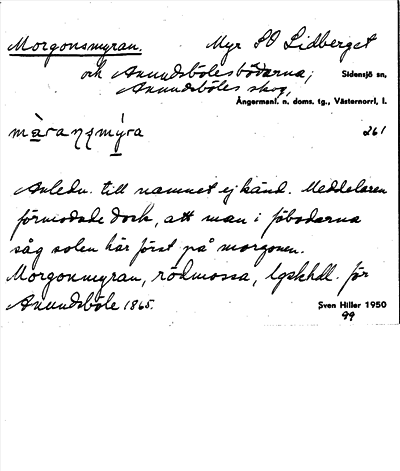 Morgonsmyran. Myr SO Lidberget
och Anundsbölesbodarna; Sidensjö sn,
Anundsböles skog, 
Ångermanl. n. doms. tg., Västernorrl. l.
261
Anledn. till namnet ej känd. Meddelaren
förmodade dock, att man i fäbodarna
såg solen här först på morgonen.
Morgonmyran, rödmossa, lgskhdl. för
Anundsböle 1865.
Sven Hiller 1950
99